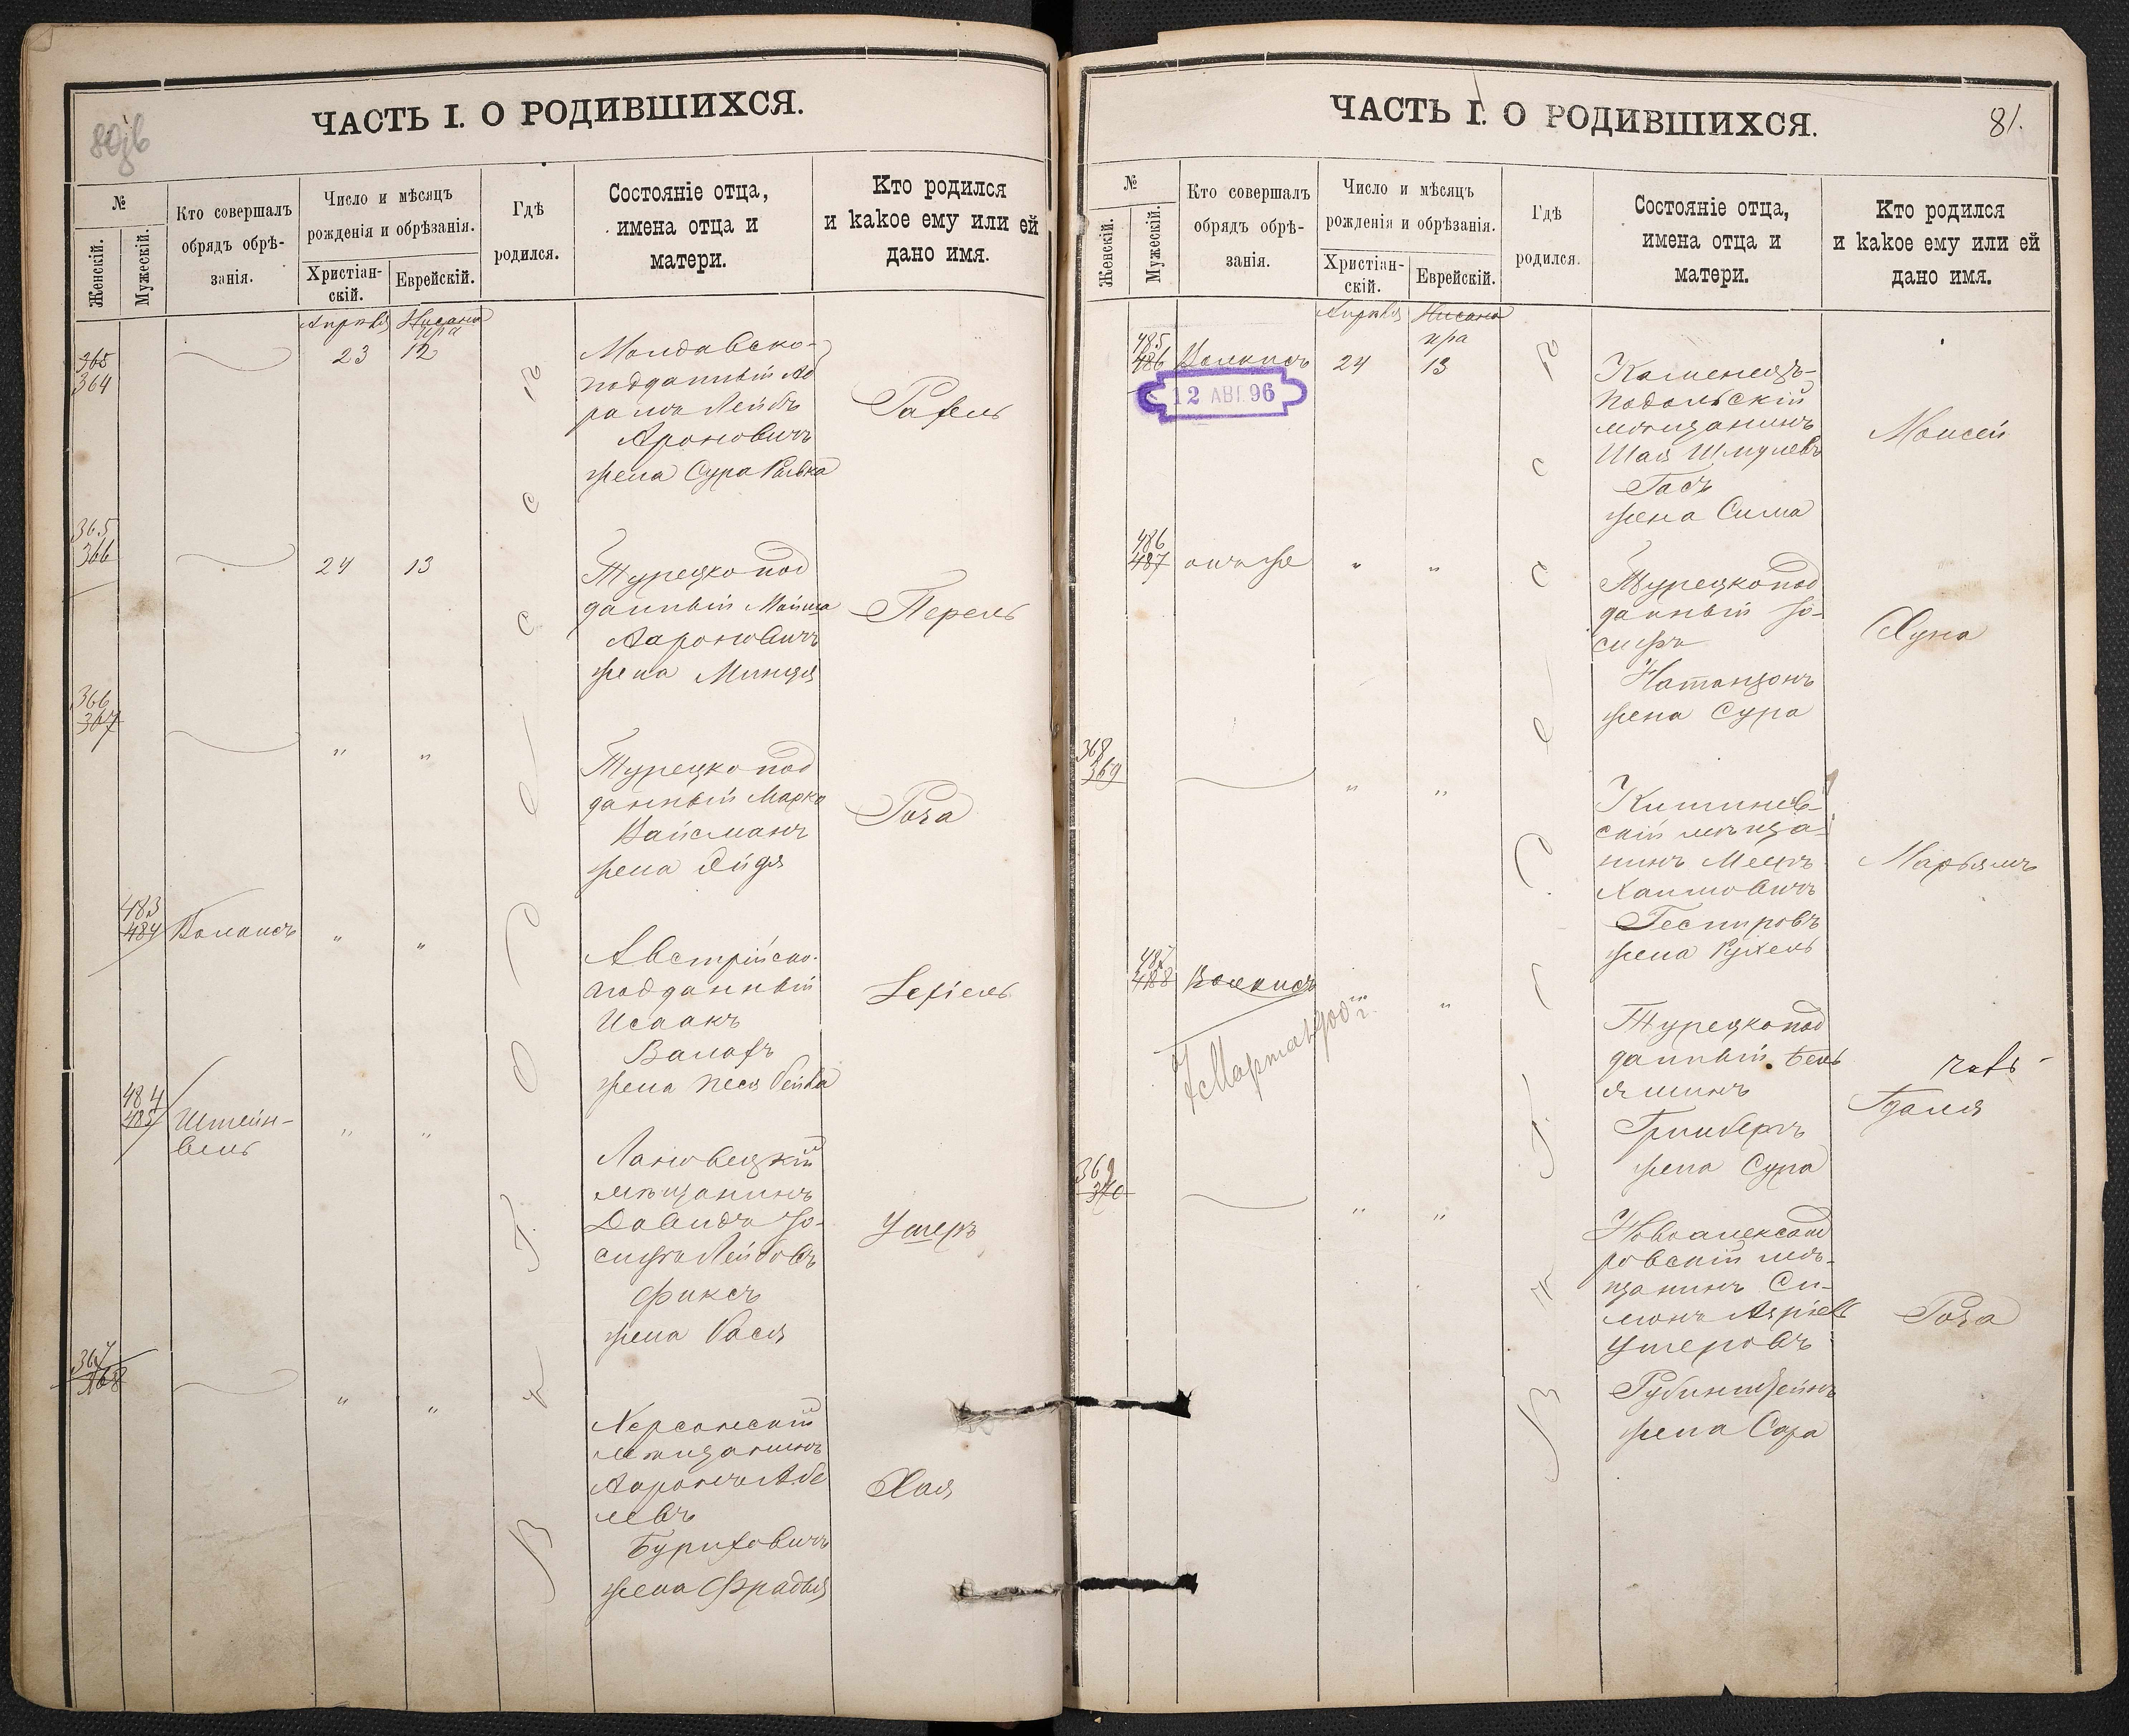 80зв
ЧАСТЬ I. О РОДИВШИХСЯ.
№
Женскій.
Мужескій.
Кто совершалъ
обрядъ обрѣ-
занія.
Число и мѣсяцъ
рожденія и обрѣзанія.
Христіан-
скій.
Еврейскій.
Гдѣ
родился.
Состояніе отца,
имена отца и
матери.
Кто родился
и какое ему или ей
дано имя.
Апрѣля Нисана
ира
365
364
23 12
Молдавско-
подданный Ав
рамъ Лейбъ
Ароновичъ
жена Сура Ривка
Рахель
365
366
24 13
Турецко под
данный Мойша
Аароновичъ
жена Минця
Перель
366
367
" "
Турецко под
данный Марко
Вайсманъ
жена Эйдя
Роза
483
484
" "
Австрійско-
подданный
Исаакъ
Валахъ
жена Песя Бейла
484
485
Штейн-
вель
" "
Мѣщанинъ
Давидъ Іо-
сифъ Лейбовъ
Фиксъ
жена Бася
Ушеръ
367
368
" "
Херсонскій
мѣщанинъ
Ааронъ Абе
левъ
Буриховичъ
жена Фрадля
Хая
81.
ЧАСТЬ I. О РОДИВШИХСЯ.
№
Женскій.
Мужескій.
Кто совершалъ
обрядъ обрѣ-
занія.
Число и мѣсяцъ
рожденія и обрѣзанія.
Христіан-
скій.
Еврейскій.
Гдѣ
родился.
Состояніе отца,
имена отца и
матери.
Кто родился
и какое ему или ей
дано имя.
Апрѣля Нисана
ира
485
486
24 13
12 АВГ. 96
Каменецъ-
Подольскій
мѣщанинъ
Шая Шмулевъ
Гасъ
жена Сима
Моисей
486
487
онъ же
" "
Турецко под
данный Іо-
сифъ
Натанзонъ
жена Сура
Хуна
368
369
" "
Кишинев-
скій мѣща-
нинъ Мееръ
Хаимовичъ
жена Рухель
Марьямъ
487
488
"
Турецко под
данный Бень
яминъ
Гринбергъ
жена Сура
Гдаля
369
370
" "
Новоалександ
ровскій мѣ-
щанинъ Си-
монъ Азріель
Ушеровъ
Рубинштейнъ
жена Сара
Роза